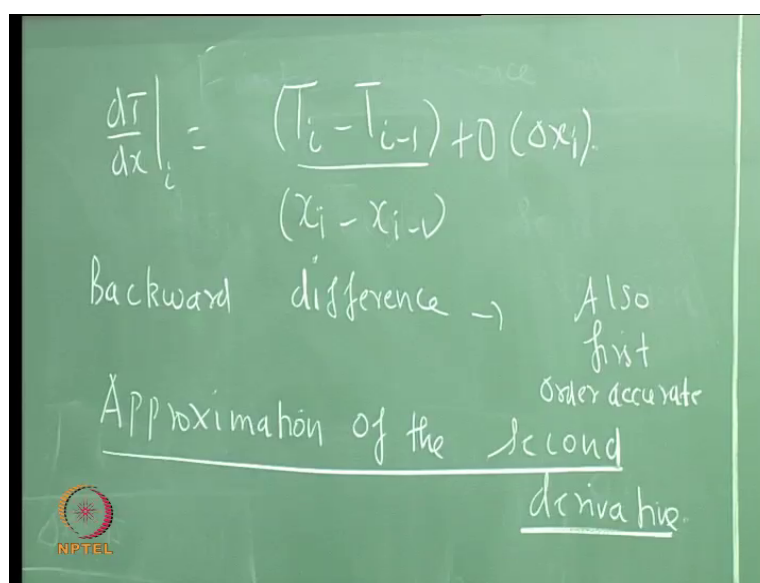 dT/dx|i = (Ti − Ti−1)/(xi − xi−1) + O(Δxi).
Backward difference → Also
first
order accurate
Approximation of the second
derivative.
NPTEL